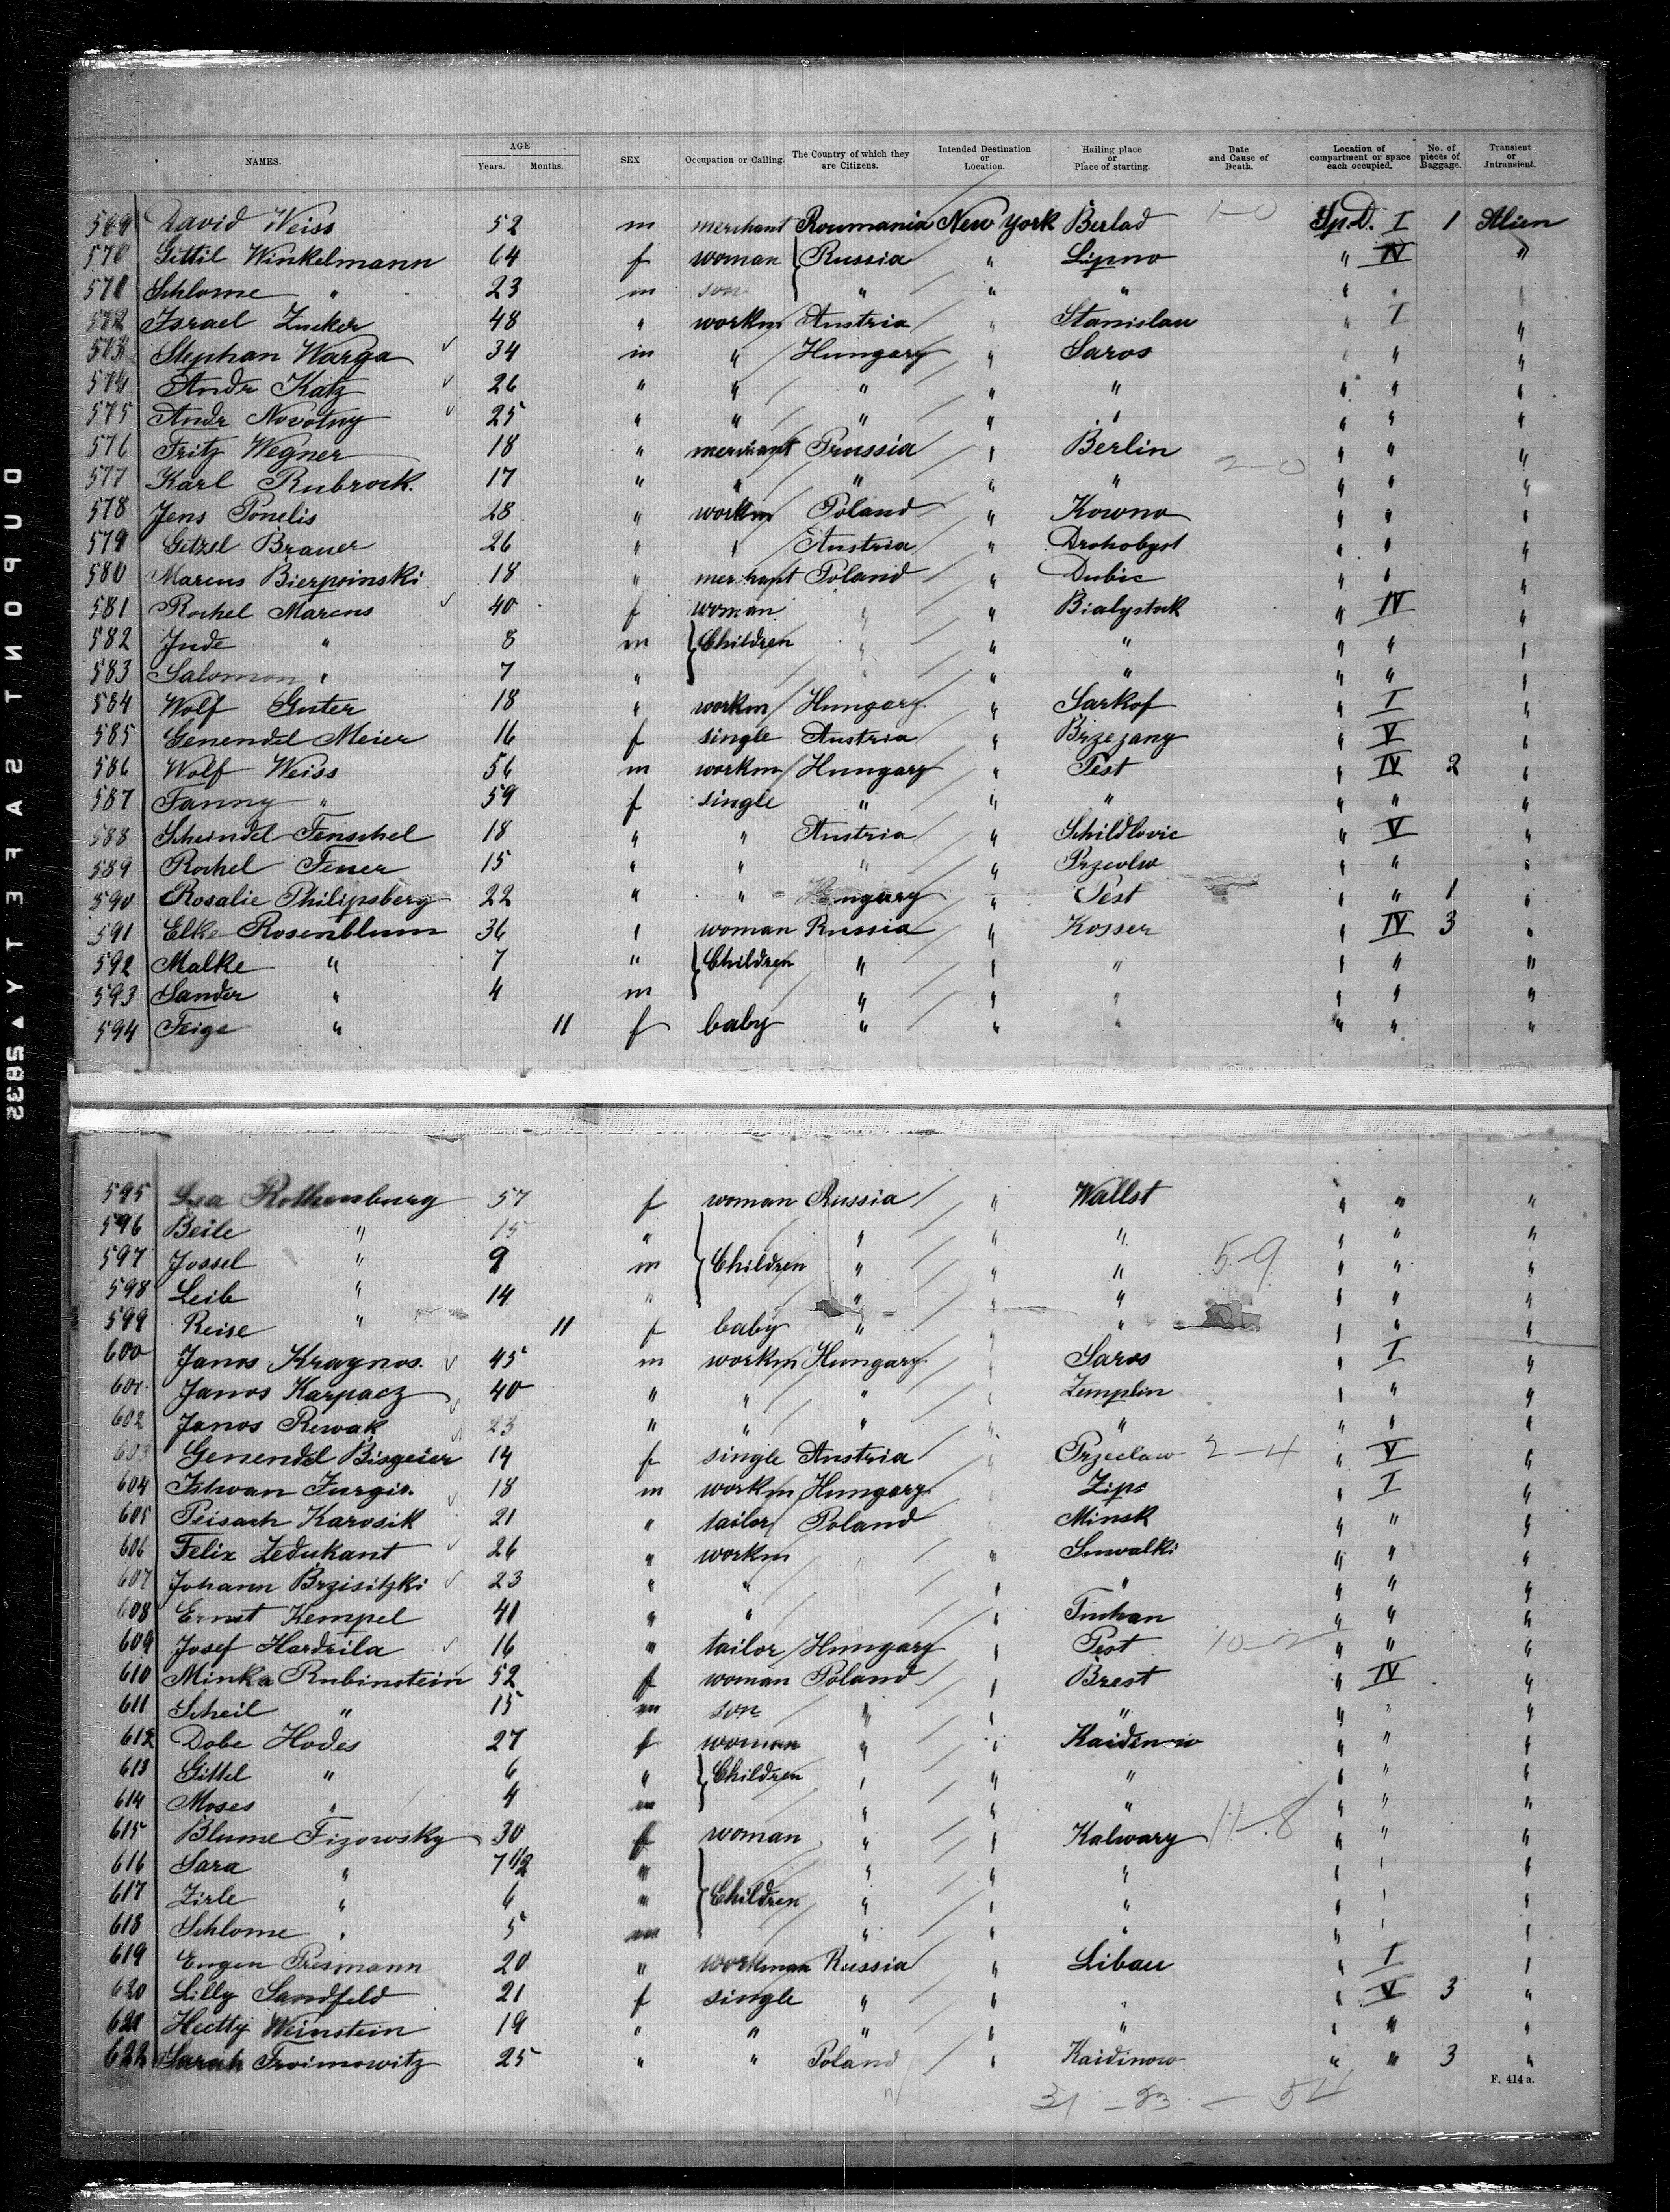 NAMES. AGE Years. Months. SEX Occupation or Calling. The Country of which they are Citizens. Intended Destination or Location. Hailing place or Place of starting. Date and Cause of Death. Location of compartment or space each occupied. No. of pieces of Baggage. Transient or Intransient.
569 David Weiss 52 m merchant Roumania New York Berlad 1-0 Sp.D. I 1 Alien
570 Gittil Winkelmann 64 f woman Russia " Lipno " IV "
571 Schlome " 23 m son " " " " " "
572 Israel Zucker 48 " workm Austria " Stanislau " I "
573 Stephan Warga 34 m " Hungary " Saros " " "
574 Andr Katz 26 " " " " " " " "
575 Andr Novotny 25 " " " " " " " "
576 Fritz Wegner 18 " merchant Prussia " Berlin " " "
577 Karl Rubrock. 17 " " " " " 2-0 " " "
578 Jens Ponelis 28 " workm Poland " Kowno " " "
579 Getzel Brauer 26 " " Austria " Drohobyst " " "
580 Marcus Bierpoinski 18 " merchant Poland " Dubic " " "
581 Rochel Marcus 40 f woman " " Bialystok " IV "
582 Jude " 8 m Children " " " " " "
583 Salomon " 7 " " " " " " "
584 Wolf Guter 18 " workm Hungary " Sarkof " I "
585 Genendel Meier 16 f single Austria " Brzezany " V "
586 Wolf Weiss 56 m workm Hungary " Pest " IV 2 "
587 Fanny " 59 f single " " " " " "
588 Scheindel Fenschel 18 " " Austria " Schildlovic " V "
589 Rochel Feuer 15 " " " " Przcolw " " "
590 Rosalie Philipsberg 22 " " Hungary " Pest " " 1 "
591 Elke Rosenblum 36 " woman Russia " Kosser " IV 3 "
592 Malke " 7 " Children " " " " " "
593 Sander " 4 m " " " " " "
594 Feige " 11 f baby " " " " " "
595 Lea Rothensburg 57 f woman Russia " Wallst " " "
596 Beile " 15 " " " " " " "
597 Jossel " 9 m Children " " " 5-9 " " "
598 Leib " 14 " " " " " " "
599 Reise " 11 f baby " " " " "
600 Janos Kraynos. 45 m workm Hungary " Saros " I "
601 Janos Karpacz 40 " " " " Zemplin " " "
602 Janos Rewak 23 " " " " " " " "
603 Genendel Bisgeier 14 f single Austria " Przeclaw 2-4 " V "
604 Istwan Zurgis. 18 m workm Hungary Zips " I "
605 Peisach Karosik 21 " tailor Poland Minsk " " "
606 Felix Zedukant 26 " workm " Suwalki " " "
607 Johann Brzisitzki 23 " " " " " " "
608 Ernst Kempel 41 " " " Tuchan " " "
609 Josef Hardzila 16 " tailor Hungary " Pest 10-2 " " "
610 Minka Rubinstein 52 f woman Poland " Brest " IV "
611 Scheil " 15 m son " " " " " "
612 Dobe Hodes 27 f woman " " Kaidinow " " "
613 Gittel " 6 " Children " " " " " "
614 Moses " 4 m " " " " " "
615 Blume Fizowsky 30 f woman " " Kalwary 11-8 " " "
616 Sara " 7 1/2 " " " " " " "
617 Zirle " 6 " Children " " " " " "
618 Schlome " 5 m " " " " " "
619 Eugen Presmann 20 " workman Russia " Libau " I "
620 Lilly Sandfeld 21 f single " " " " V 3 "
621 Hectty Weinstein 19 " " " " " " " "
622 Sarah Froimowitz 25 " " Poland " Kaidinow " " 3 "
F. 414 a.
31 - 23 - 54
DUPONT SAFETY ▲ S3832